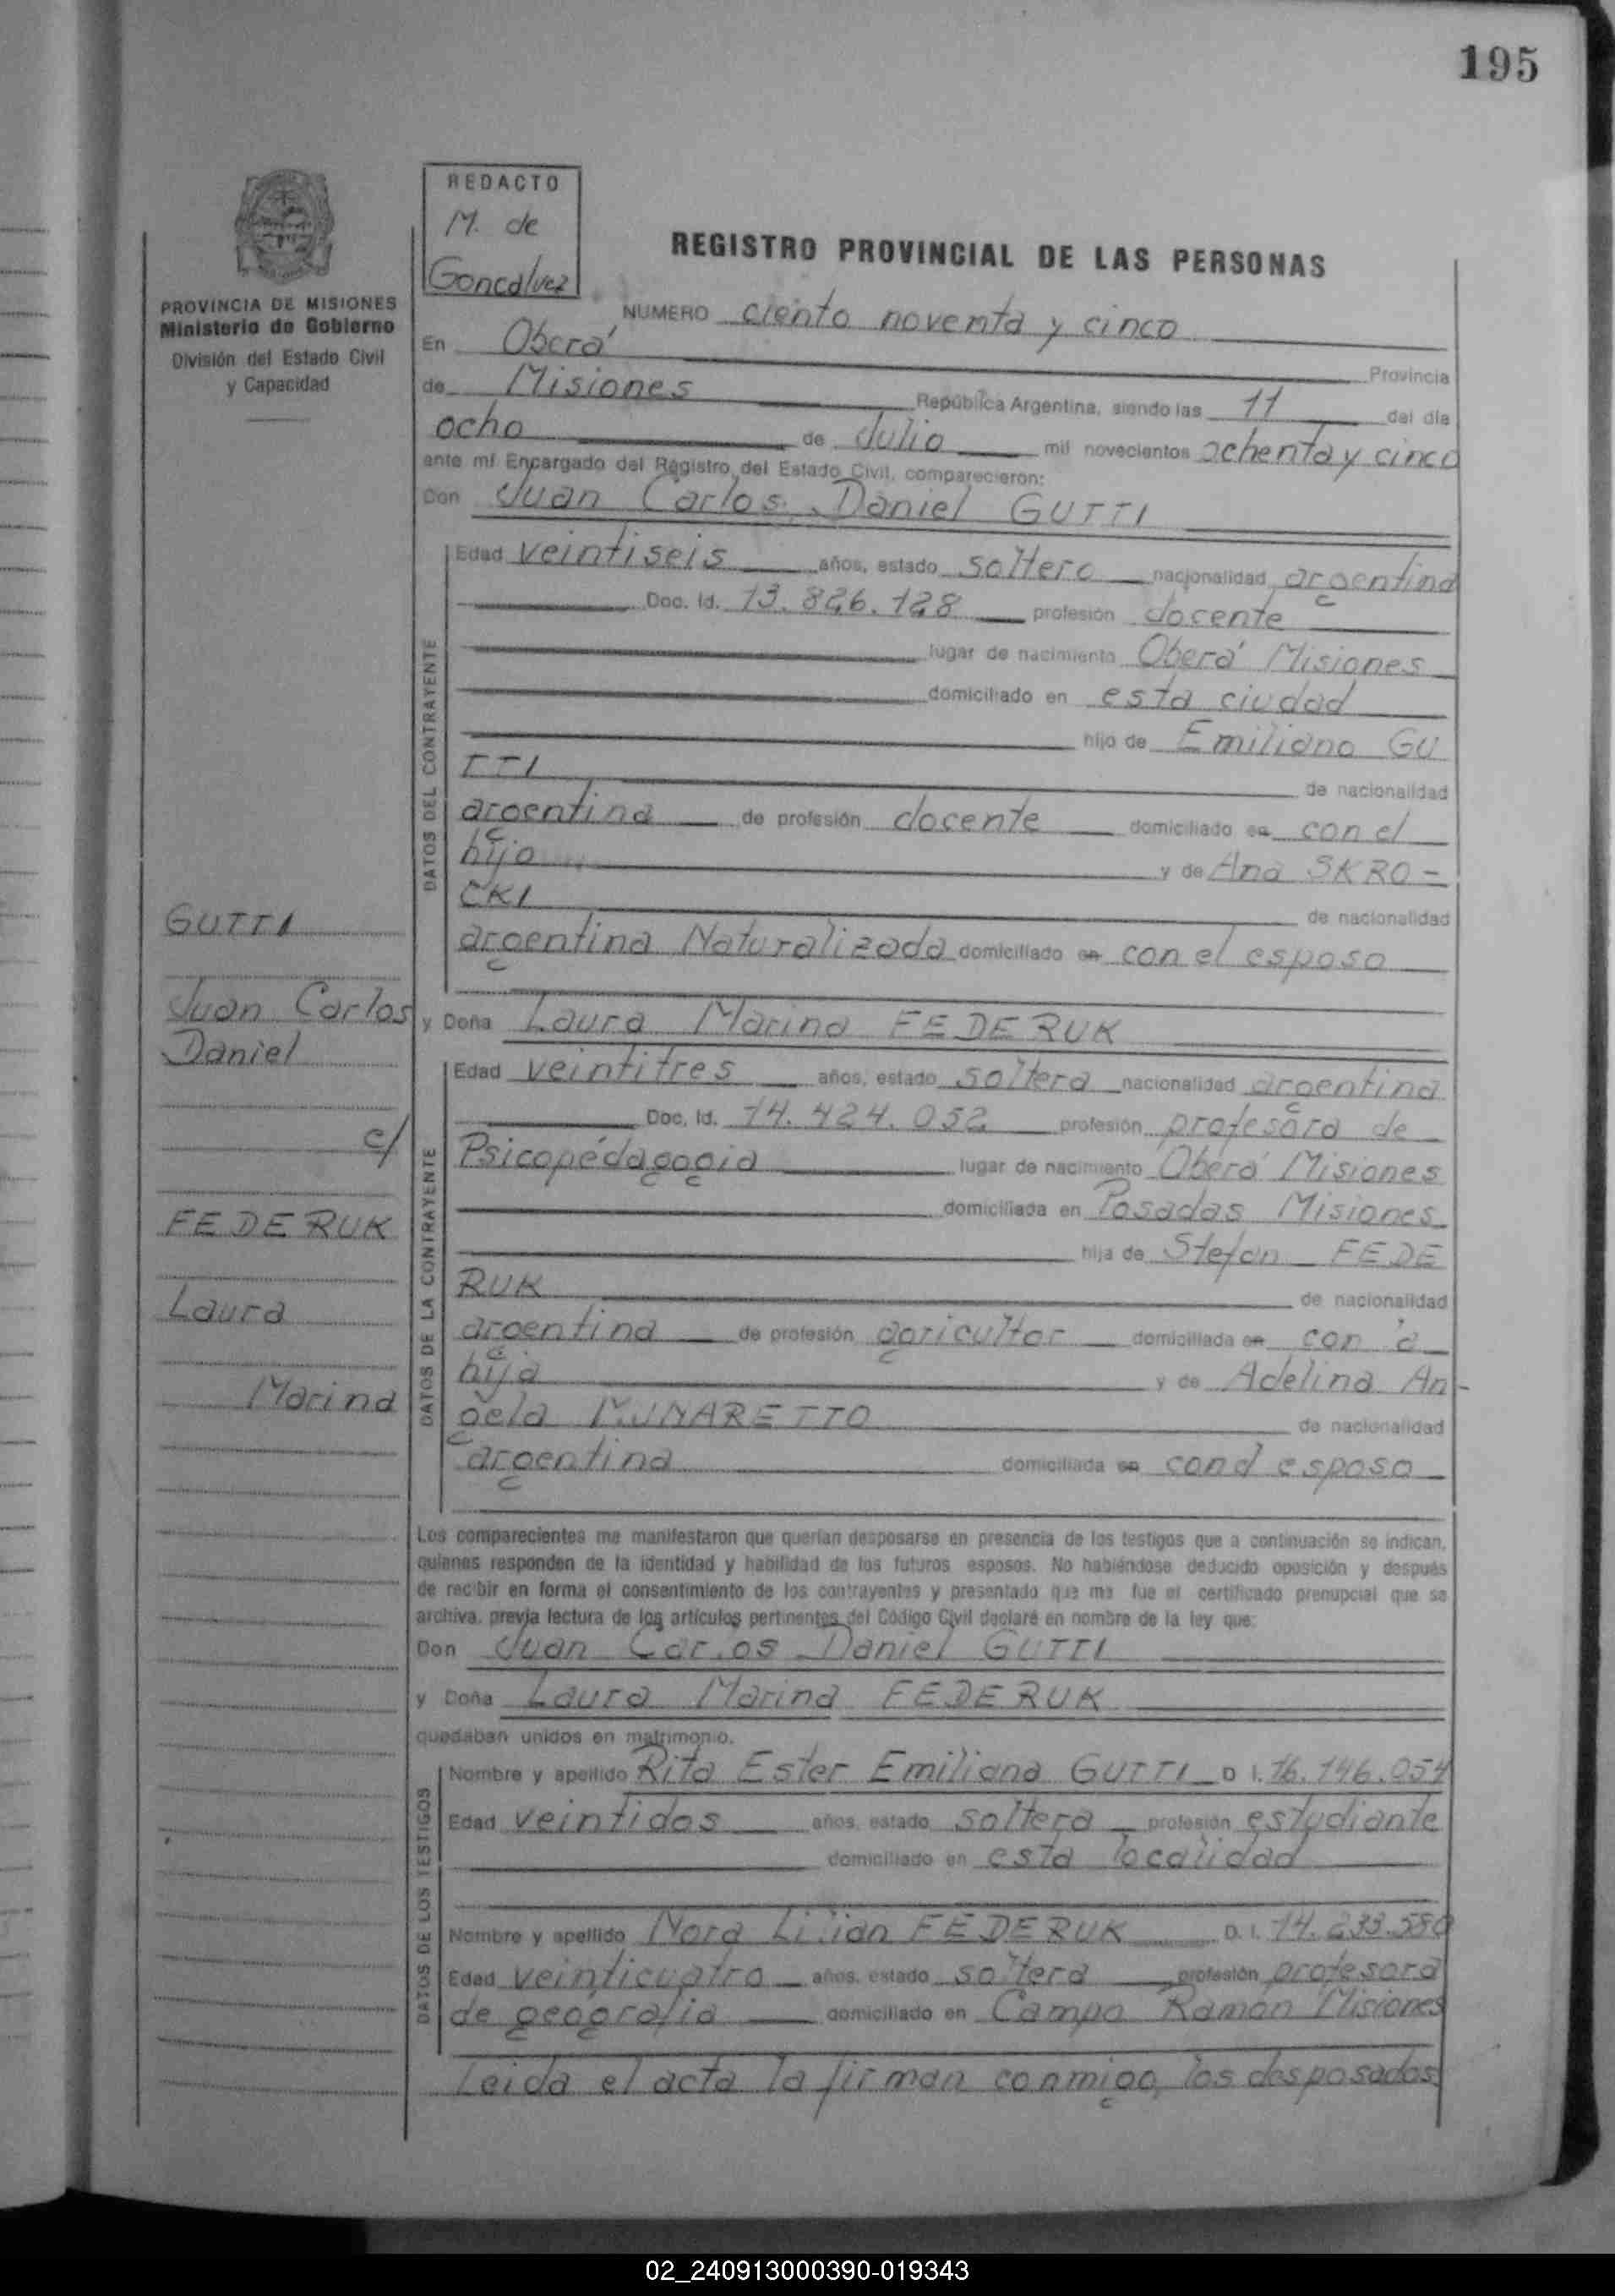 195
REDACTO
M. de
Goncalvez
REGISTRO PROVINCIAL DE LAS PERSONAS
PROVINCIA DE MISIONES
Ministerio de Gobierno
División del Estado Civil
y Capacidad
NUMERO ciento noventa y cinco
En Oberá Provincia
de Misiones República Argentina, siendo las 11 del día
ocho de Julio mil novecientos ochenta y cinco
ante mí Encargado del Registro del Estado Civil, comparecieron:
Don Juan Carlos Daniel GUTTI
DATOS DEL CONTRAYENTE
Edad veintiseis años, estado soltero nacionalidad argentina
Doc. Id. 13.826.128 profesión docente
lugar de nacimiento Oberá Misiones
domiciliado en esta ciudad
hijo de Emiliano GU
TTI de nacionalidad
argentina de profesión docente domiciliado en con el
hijo y de Ana SKRO-
CKI de nacionalidad
argentina Naturalizada domiciliado en con el esposo
GUTTI
Juan Carlos
Daniel
c/
FEDERUK
Laura
Marina
y Doña Laura Marina FEDERUK
DATOS DE LA CONTRAYENTE
Edad veintitres años, estado soltera nacionalidad argentina
Doc. Id. 14.424.052 profesión profesora de
Psicopédagogia lugar de nacimiento Oberá Misiones
domiciliada en Posadas Misiones
hija de Stefan FEDE
RUK de nacionalidad
argentina de profesión agricultor domiciliada en con la
hija y de Adelina An-
gela MUNARETTO de nacionalidad
argentina domiciliada en con el esposo
Los comparecientes me manifestaron que querían desposarse en presencia de los testigos que a continuación se indican,
quienes responden de la identidad y habilidad de los futuros esposos. No habiéndose deducido oposición y después
de recibir en forma el consentimiento de los contrayentes y presentado que me fue el certificado prenupcial que se
archiva, previa lectura de los artículos pertinentes del Código Civil declaré en nombre de la ley que:
Don Juan Carlos Daniel GUTTI
y Doña Laura Marina FEDERUK
quedaban unidos en matrimonio.
DATOS DE LOS TESTIGOS
Nombre y apellido Rita Ester Emiliana GUTTI D. I. 16.146.054
Edad veintidos años, estado soltera profesión estudiante
domiciliado en esta localidad
Nombre y apellido Nora Lilian FEDERUK D. I. 14.233.580
Edad veinticuatro años, estado soltera profesión profesora
de geografia domiciliado en Campo Ramón Misiones
Leida el acta la firman conmigo, los desposados
02_240913000390-019343